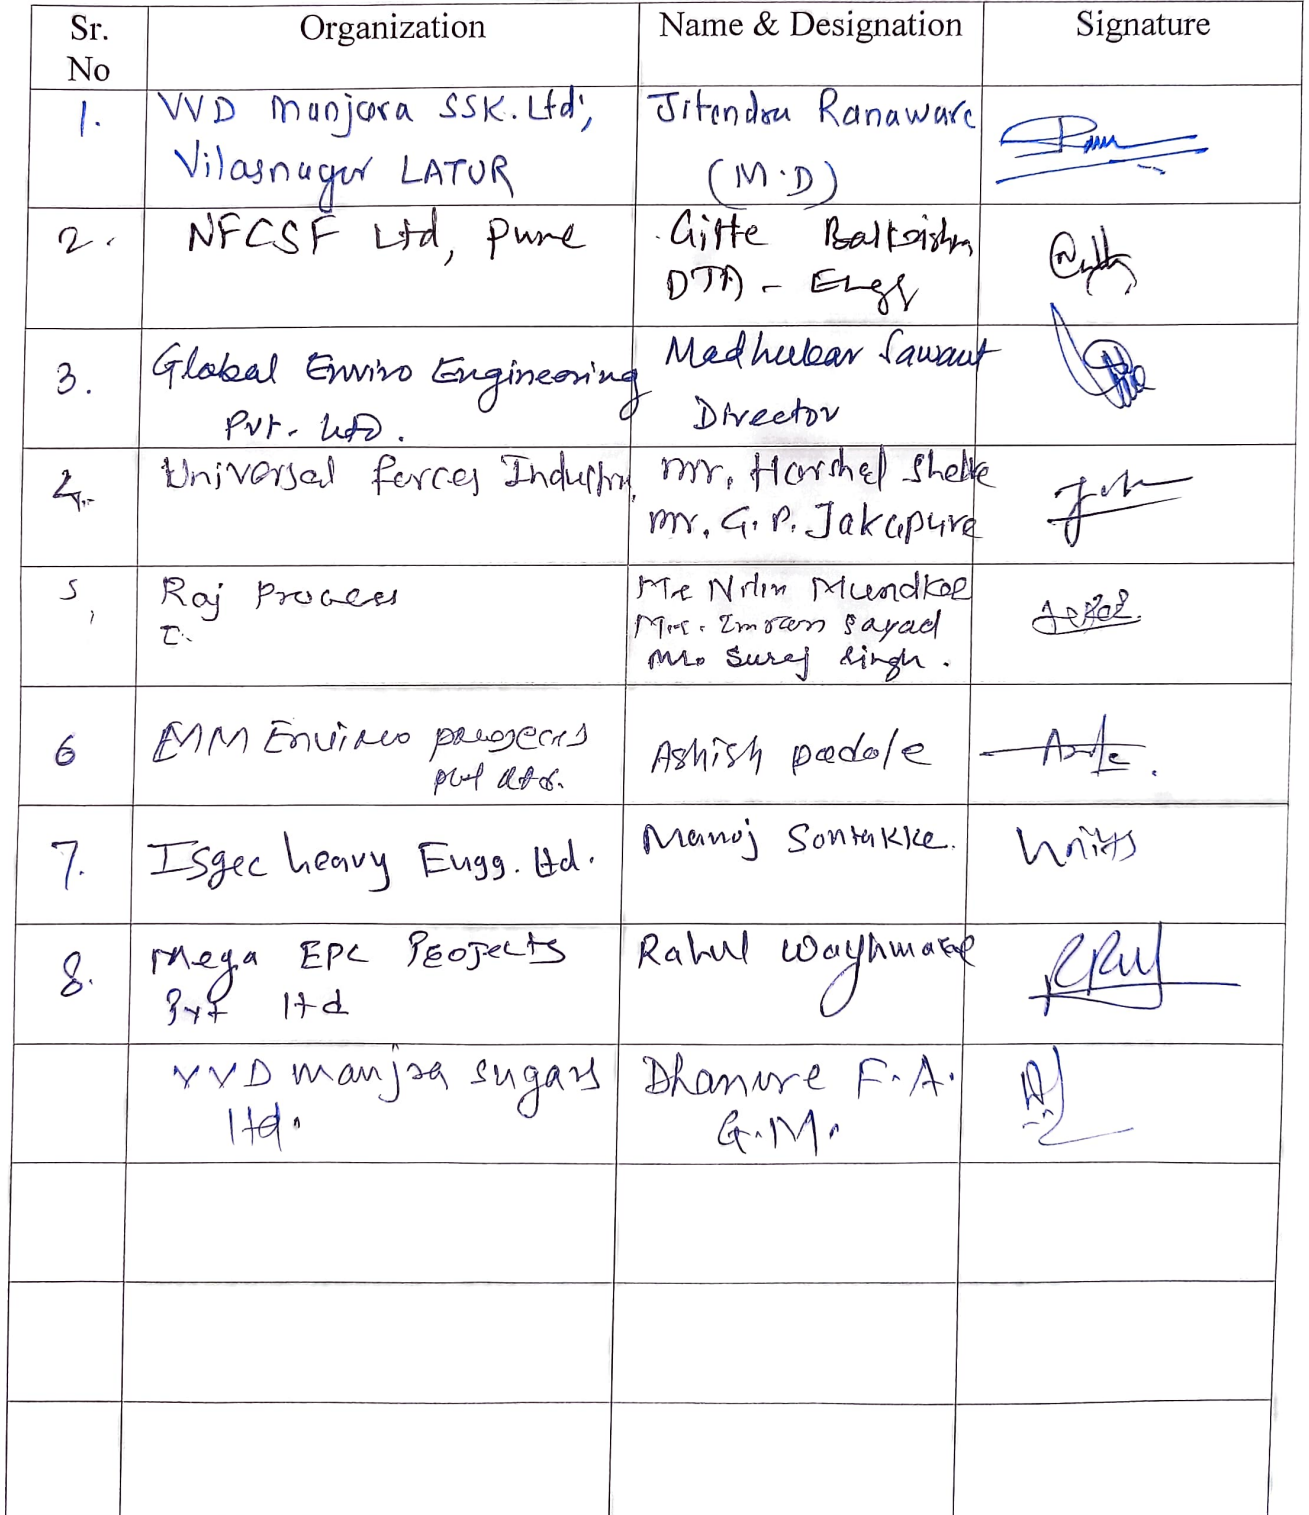 Sr. No Organization Name & Designation Signature
1. VVD Manjara SSK. Ltd, Jitendra Ranaware
Vilasnagar LATUR (M.D)
2. NFCSF Ltd, Pune Gitte Balkrishna
DTA - Engg
3. Global Enviro Engineering Madhukar Sawant
Pvt. Ltd. Director
4. Universal forces Industry Mr. Harshal Shelke
Mr. G. P. Jakapure
5, Raj Process Mr Nitin Mundkar
Mr. Imran Sayad
Mr. Suraj Singh.
6 MM Enviro projects Ashish padole
pvt Ltd.
7. Isgec heavy Engg. Ltd. Manoj Sontakke.
8. Mega EPC Projects Rahul Waghmare
Pvt ltd
VVD manjra sugars Dhanure F.A.
ltd. G.M.